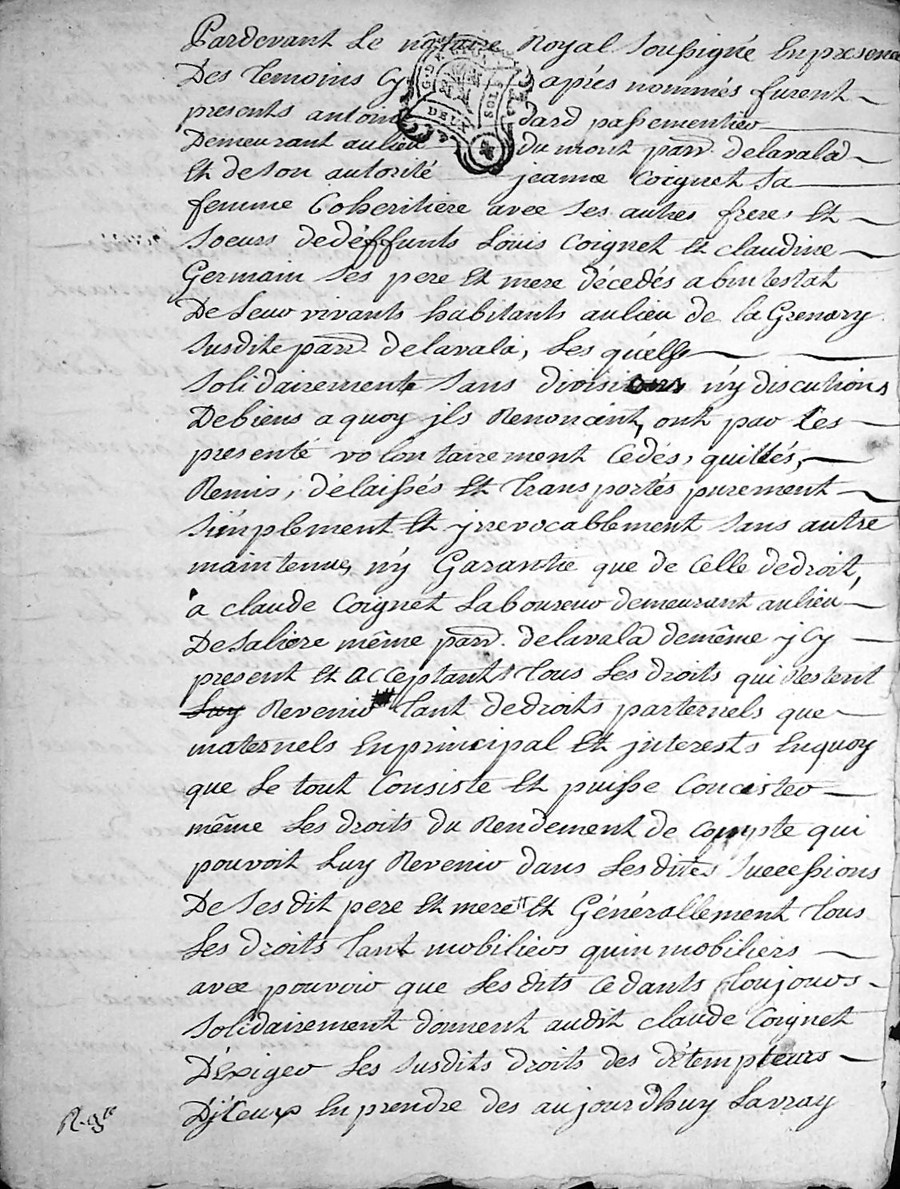 Pardevant Le nôtaire Royal soussigné En presence
Des temoins Cy apiés nommés furent
presents antoine dard passementier
Demeurant aulieu du mont parr. delavala
Et de son autorité jeanne Coignet Sa
femme Coheritiere avec ses autres freres Et
Soeurs dedéffunts Louis Coignet Et claudine
Germain Ses pere Et mere décedés abintestat
De Leur vivants habitants aulieu de la Grenary
susdite parr. delavala, Les quells
Solidairement Sans divisions n'y discutions
De biens a quoy jls Renoncent, ont par Les
presenté volontairement Cedés, quittés,
Remis, délaissés Et transportés purement
Simplement Et jrrevocablement sans autre
maintenue, n'y Garantie que de Celle dedroit,
a claude Coignet Laboureur demeurant aulieu
De Saliere même parr. delavala demême jCy
present Et acceptant tous Les droits qui
Luy Revenir tant dedroits parternels que
maternels En principal Et jnterests Enquoy
que Le tout Consiste Et puisse Concister
même Les droits du Rendement de Compte qui
pouvoit Luy Revenir dans Les dites Successions
De Sesdit pere Et mere Et Générallement tous
Les droits tant mobiliers quinmobiliers
avec pouvoir que Les dits Cedants toujours
Solidairement donnent audit claude Coignet
D'éxiger Les susdits droits des détempteurs
D'jCeux En prendre des aujourdhuy Lavray
G. DE LYON
DEUX SOLS